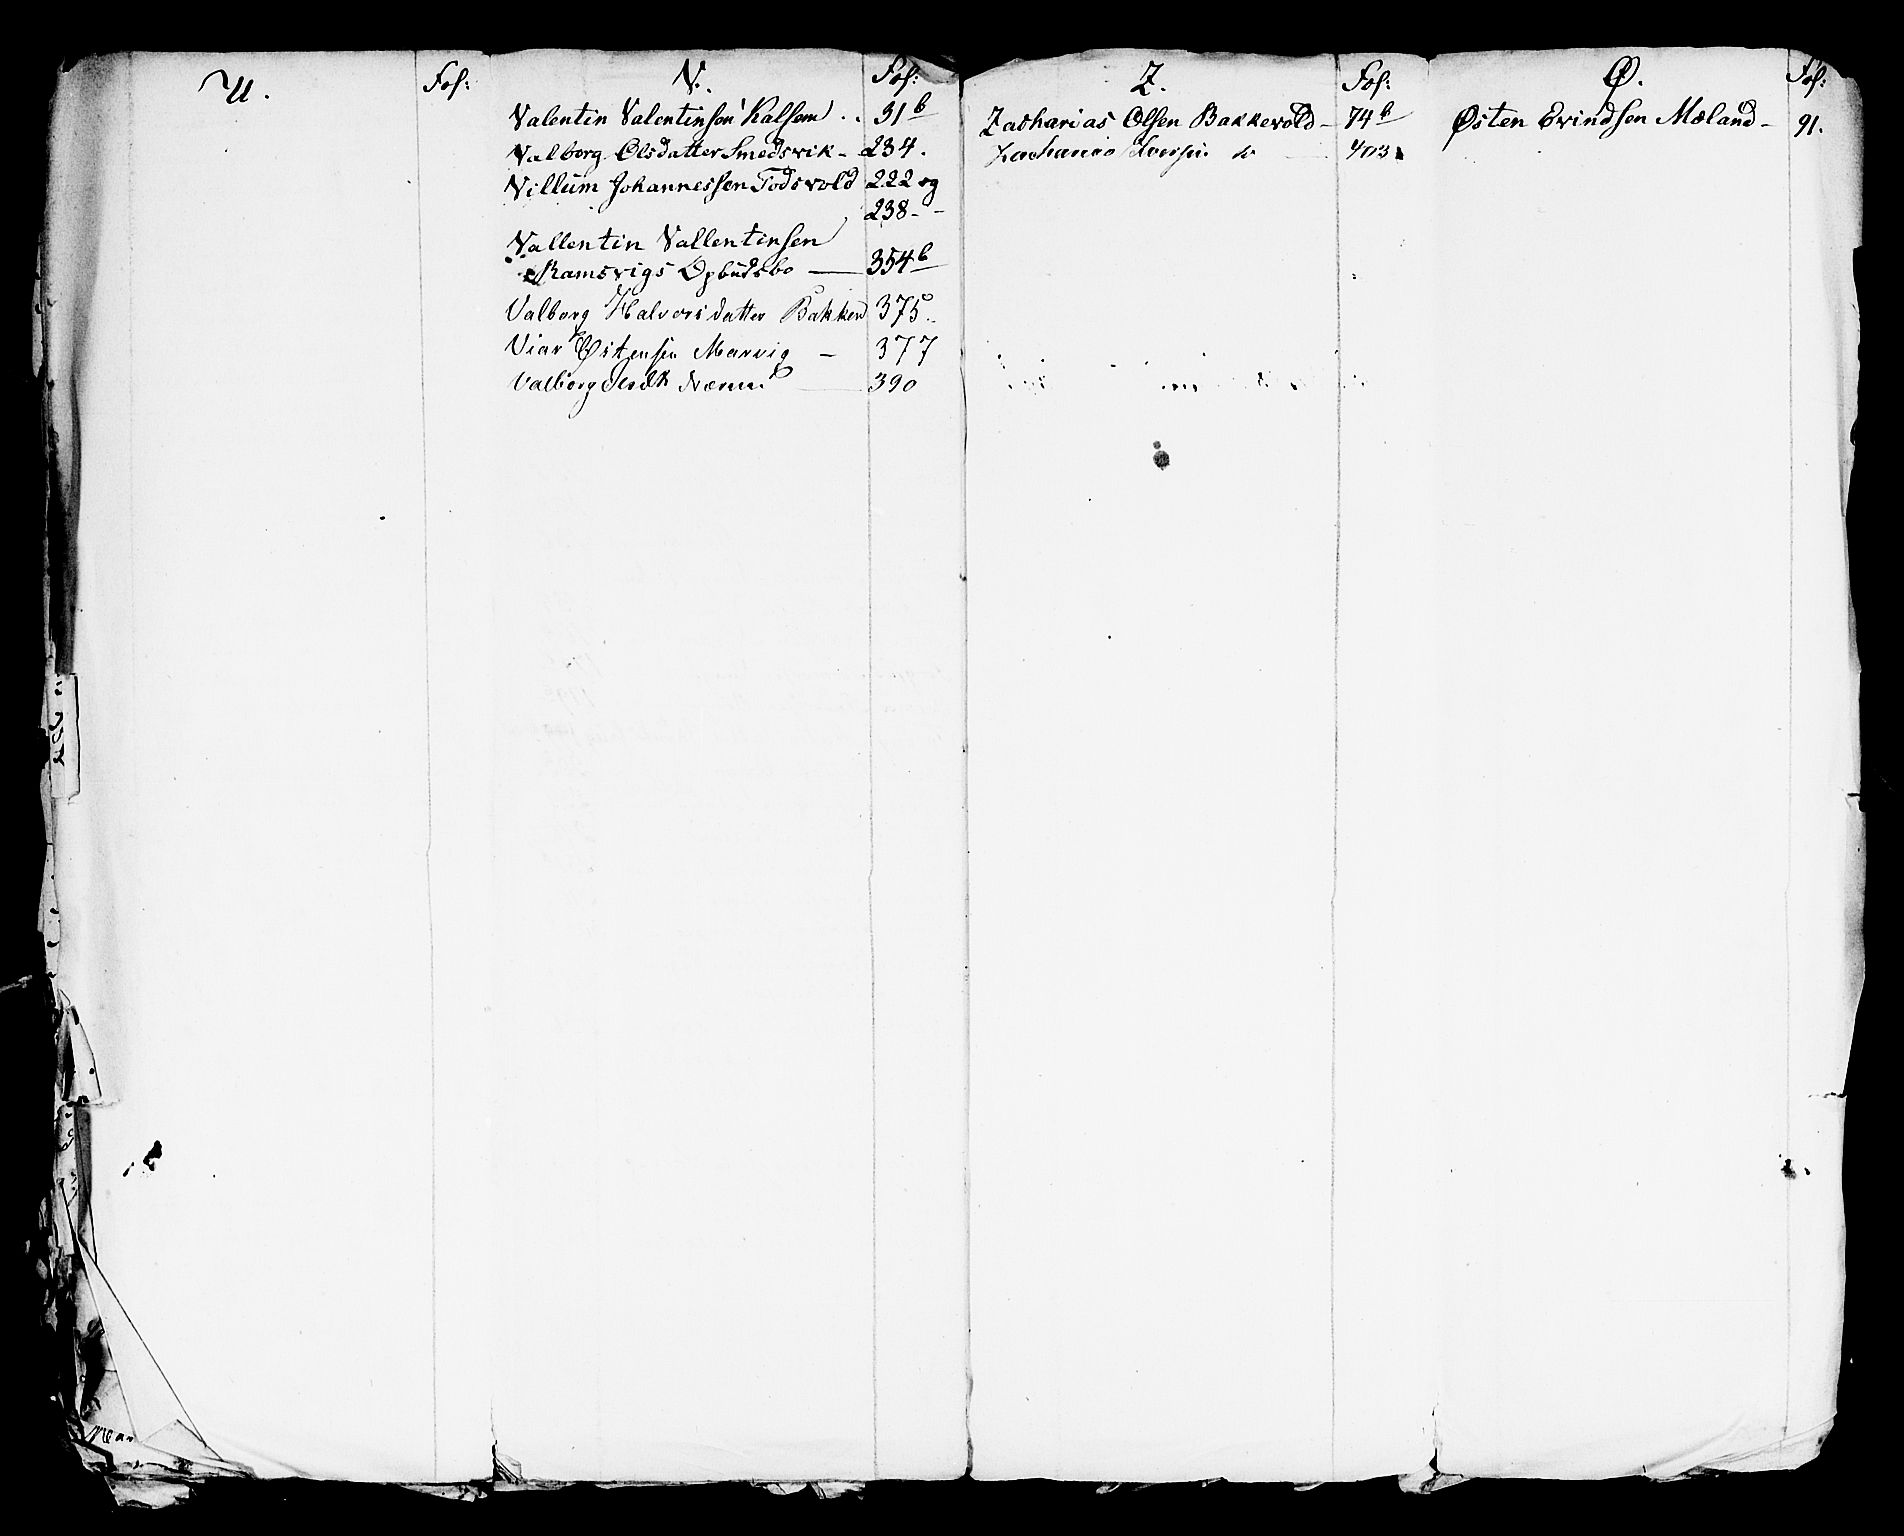 U.
Fol:
V.
Fol:
Valentin Valentinsen Kalsem . . 31b
Valborg Olsdatter Smedsvik - 234.
Villum Johannessen Todsvold 222 og
238 - -
Vallentin Vallentinsen
Ramsvigs Opbudsbo — 354b
Valborg Halvorsdatter Bakken 375.
Viar Østensen Marvig - 377
Valborg 390
Z.
Fol:
Zacharias Olsen Bakkevold - 74b
Zacharias Iversen do 403
Ø.
Fol:
Østen Evindsen Mæland - 91.